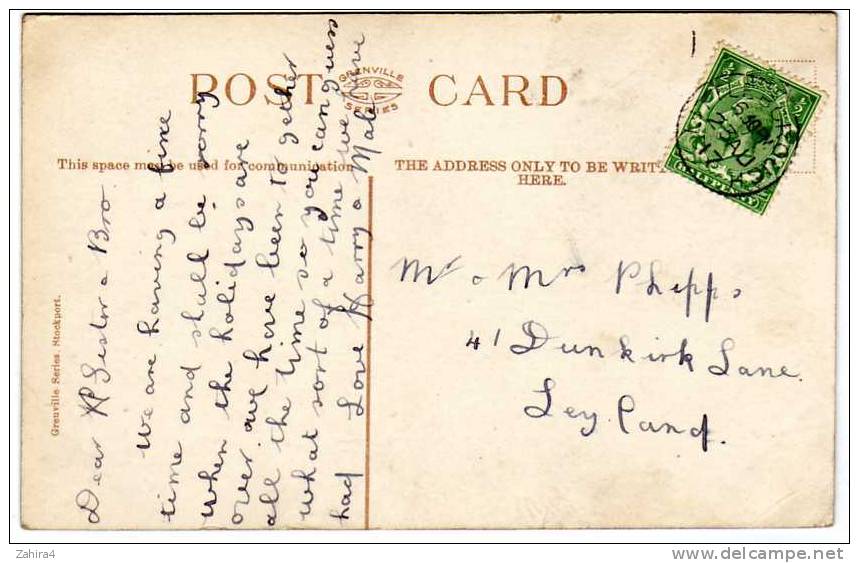 POST CARD
GRENVILLE
SERIES
This space may be used for communication
THE ADDRESS ONLY TO BE WRIT
HERE.
Dear Sister & Bro
We are having a fine
time and shall be sorry
when the holidays are
over we have been to gether
all the time so you can guess
what sort of a time we have
had Love Harry & Mab
Mr & Mrs Phipps
41 Dunkirk Lane
Leyland.
Grenville Series. Stockport.
½ ½
HALFPENNY
23 AU
17
Zahira4
delcampe.net